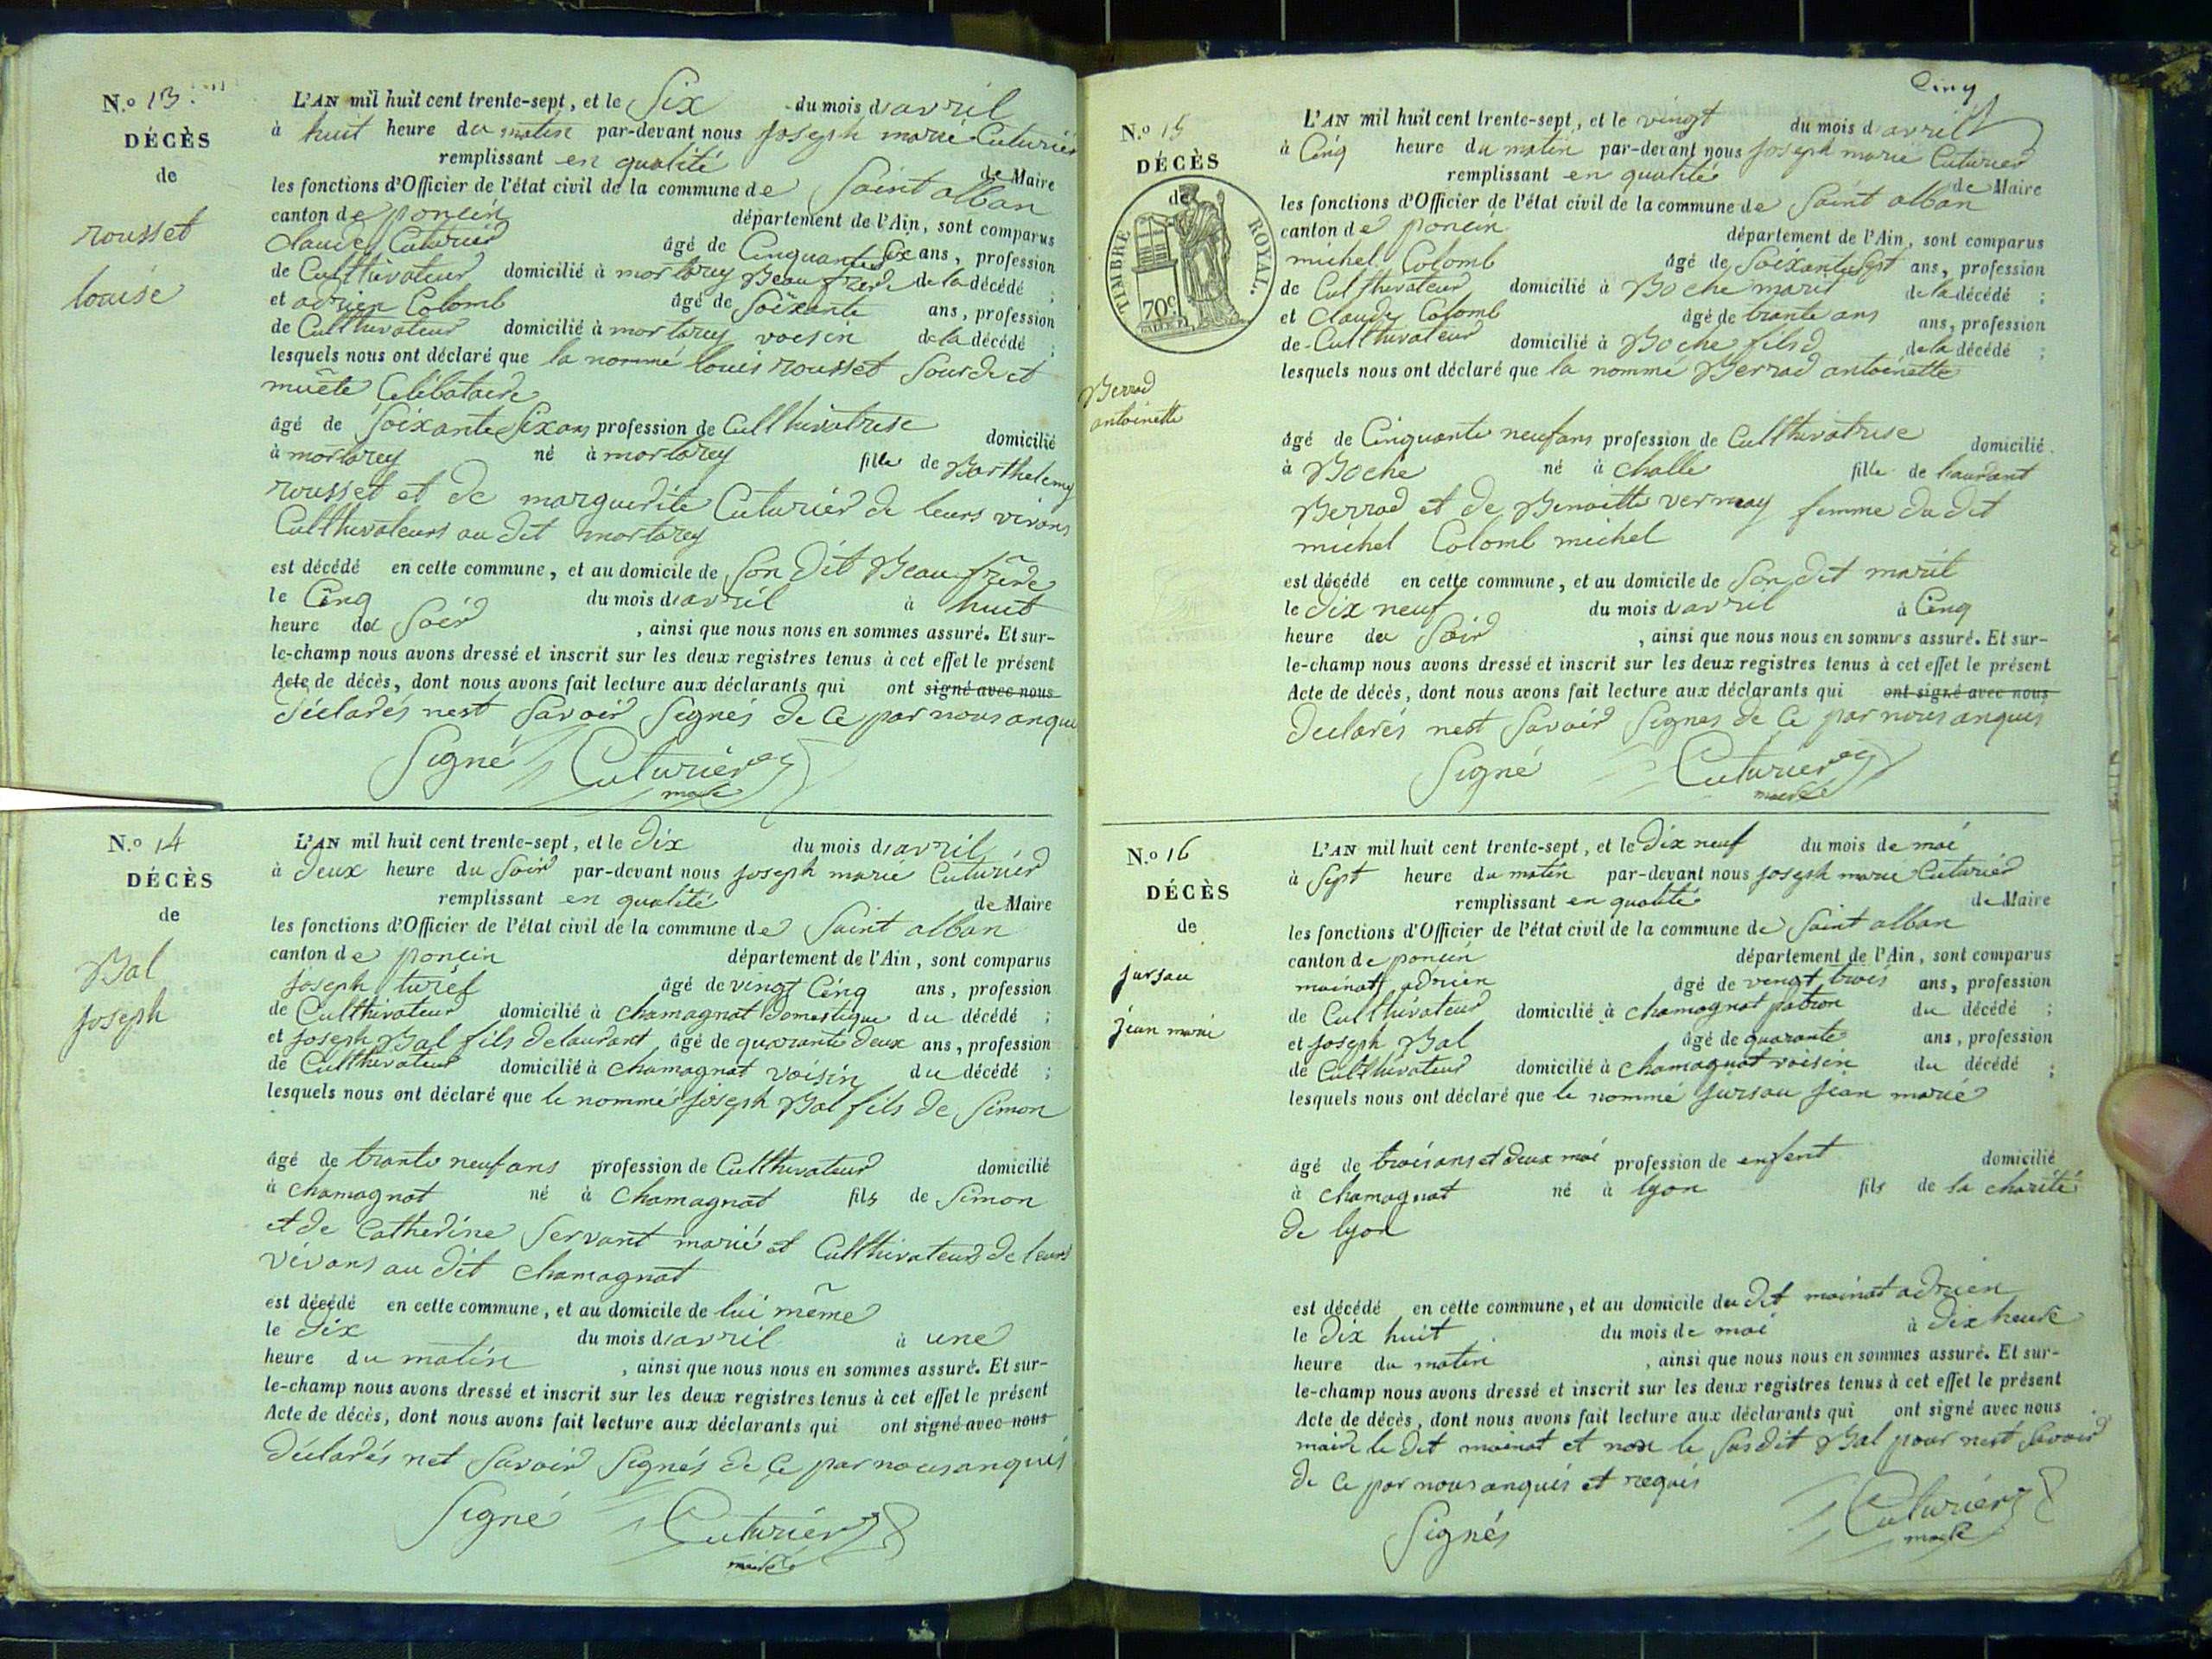 N.o 13.
DÉCÈS
de
rousset
louise
L'AN mil huit cent trente-sept, et le Six du mois d'avril
à huit heure du matin par-devant nous joseph marie Cuturier
remplissant en qualité de Maire
les fonctions d'Officier de l'état civil de la commune de Saint alban
canton de poncin département de l'Ain, sont comparus
Claude Cuturier âgé de Cinquante Six ans, profession
de Culthivateur domicilié à mortarey Beau frere de la décédé ;
et adrien Colomb âgé de Soixante ans, profession
de Culthivateur domicilié à mortarey voisin de la décédé ;
lesquels nous ont déclaré que la nommé louis rousset Sourde et
muète Célibataire
âgé de Soixante Six ans profession de Culthivatrise domicilié
à mortarey né à mortarey fille de Barthelemy
rousset et de marguerite Cuturier de leurs vivans
Culthivateurs au dit mortarey
est décédé en cette commune, et au domicile de Son dit Beau frère
le Cinq du mois d'avril à huit
heure du Soir , ainsi que nous nous en sommes assuré. Et sur-
le-champ nous avons dressé et inscrit sur les deux registres tenus à cet effet le présent
Acte de décès, dont nous avons fait lecture aux déclarants qui ont signé avec nous
déclarés nest Savoir Signés de Ce par nous anquis
Signé Cuturier
maire
N.o 14
DÉCÈS
de
Bal
joseph
L'AN mil huit cent trente-sept, et le dix du mois d'avril
à deux heure du Soir par-devant nous joseph marie Cuturier
remplissant en qualité de Maire
les fonctions d'Officier de l'état civil de la commune de Saint alban
canton de poncin département de l'Ain, sont comparus
joseph turel âgé de vingt Cinq ans, profession
de Culthivateur domicilié à Chamagnat domestique du décédé ;
et joseph Bal fils de laurant, âgé de quarante deux ans, profession
de Culthivateur domicilié à Chamagnat voisin du décédé ;
lesquels nous ont déclaré que le nommé joseph Bal fils de Simon
âgé de trante neuf ans profession de Culthivateur domicilié
à chamagnat né à Chamagnat fils de Simon
et de Catherine Servant marié et Culthivateurs de leurs
vivans au dit chamagnat
est décédé en cette commune, et au domicile de lui même
le dix du mois d'avril à une
heure du matin , ainsi que nous nous en sommes assuré. Et sur-
le-champ nous avons dressé et inscrit sur les deux registres tenus à cet effet le présent
Acte de décès, dont nous avons fait lecture aux déclarants qui ont signé avec nous
déclarés net Savoir Signés de Ce par nous anquis
Signé Cuturier
maire
Cinq
N.o 15
DÉCÈS
de
TIMBRE ROYAL.
70c
Berrod
antoinette
L'AN mil huit cent trente-sept, et le vingt du mois d'avril
à Cinq heure du matin par-devant nous joseph marie Cuturier
remplissant en qualité de Maire
les fonctions d'Officier de l'état civil de la commune de Saint alban
canton de poncin département de l'Ain, sont comparus
michel Colomb âgé de Soixante Sept ans, profession
de Culthivateur domicilié à Boche marit de la décédé ;
et Claude Colomb âgé de trante ans ans, profession
de Culthivateur domicilié à Boche fils de la décédé ;
lesquels nous ont déclaré que la nommé Berrod antoinette
âgé de Cinquante neuf ans profession de Culthivatrise domicilié
à Boche né à challe fille de laurant
Berrod et de Benoitte vermay femme du dit
michel Colomb michel
est décédé en cette commune, et au domicile de Son dit marit
le dix neuf du mois d'avril à Cinq
heure du Soir , ainsi que nous nous en sommes assuré. Et sur-
le-champ nous avons dressé et inscrit sur les deux registres tenus à cet effet le présent
Acte de décès, dont nous avons fait lecture aux déclarants qui ont signé avec nous
déclarés nest Savoir Signes de Ce par nous anquis
Signé Cuturier
maire
N.o 16
DÉCÈS
de
jursau
jean marie
L'AN mil huit cent trente-sept, et le dix neuf du mois de mai
à Sept heure du matin par-devant nous joseph marie Cuturier
remplissant en qualité de Maire
les fonctions d'Officier de l'état civil de la commune de Saint alban
canton de poncin département de l'Ain, sont comparus
moinat adrien âgé de vingt trois ans, profession
de Culthivateur domicilié à chamagnat patron du décédé ;
et joseph Bal âgé de quarante ans, profession
de Culthivateur domicilié à Chamagnat voisin du décédé ;
lesquels nous ont déclaré que le nommé jursau jean marie
âgé de trois ans et deux moi profession de enfent domicilié
à Chamagnat né à lyon fils de la charité
de lyon
est décédé en cette commune, et au domicile du dit moinat adrien
le dix huit du mois de mai à dix heure
heure du matin , ainsi que nous nous en sommes assuré. Et sur-
le-champ nous avons dressé et inscrit sur les deux registres tenus à cet effet le présent
Acte de décès, dont nous avons fait lecture aux déclarants qui ont signé avec nous
maire le dit moinat et non le Susdit Bal pour nest Savoir
de Ce par nous anquis et requis
Signés Cuturier
maire